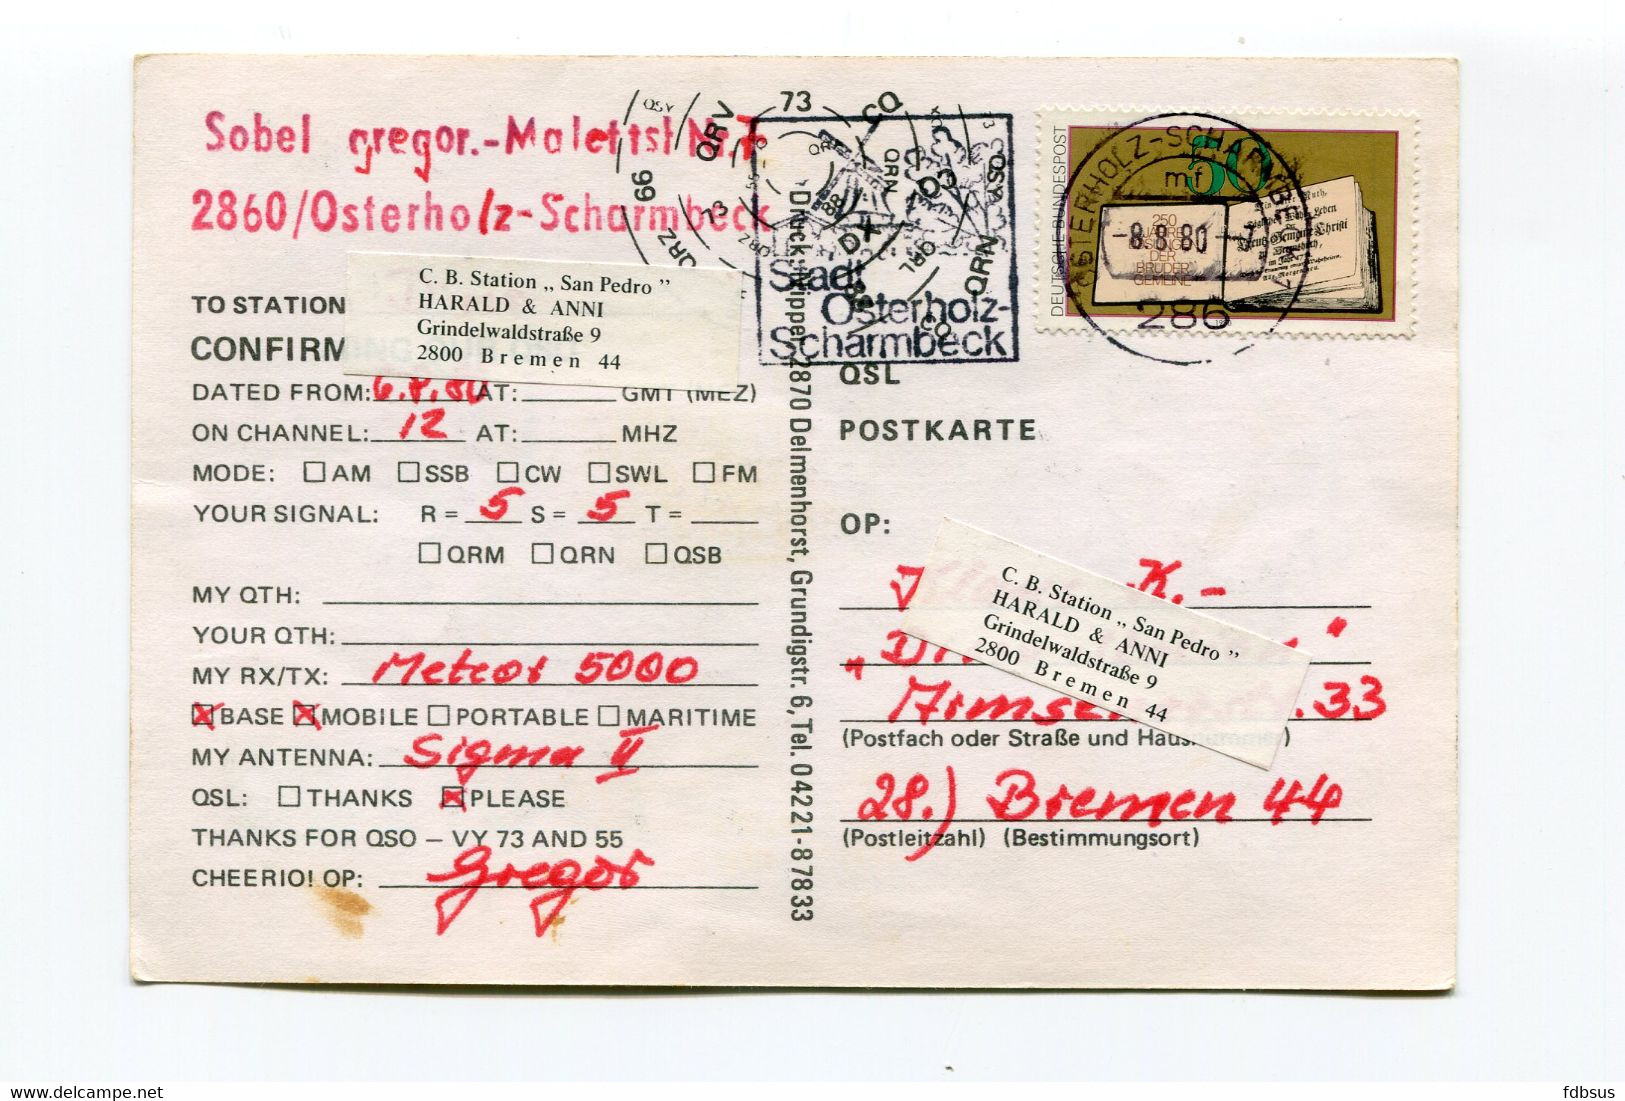 Sobel gregor.-Malettst Nr.7
2860/Osterholz-Scharmbeck
TO STATION
C. B. Station „ San Pedro ”
HARALD & ANNI
Grindelwaldstraße 9
2800 Bremen 44
CONFIRM
DATED FROM: 6.8.80 AT: GMT (MEZ)
ON CHANNEL: 12 AT: MHZ
MODE: AM SSB CW SWL FM
YOUR SIGNAL: R = 5 S = 5 T =
QRM QRN QSB
MY QTH:
YOUR QTH:
MY RX/TX: Meteor 5000
BASE MOBILE PORTABLE MARITIME
MY ANTENNA: Sigma II
QSL: THANKS PLEASE
THANKS FOR QSO – VY 73 AND 55
CHEERIO! OP: Gregor
Druck: Kipper, 2870 Delmenhorst, Grundigstr. 6, Tel. 04221-87833
73 CQ QRV QRN QSY
99 73 88 DX QRL QRN
QRZ CQ
Stadt
Osterholz-
Scharmbeck
DEUTSCHE BUNDESPOST
50
250
JAHRE
LOSUNGEN
DER
BRÜDER
GEMEINE
OSTERHOLZ-SCHARMBECK
mf
-8.8.80-7
286
QSL
POSTKARTE
OP:
K.-
C. B. Station „ San Pedro ”
HARALD & ANNI
Grindelwaldstraße 9
2800 Bremen 44
33
(Postfach oder Straße und Haus )
28.) Bremen 44
(Postleitzahl) (Bestimmungsort)
delcampe.net
fdbsus